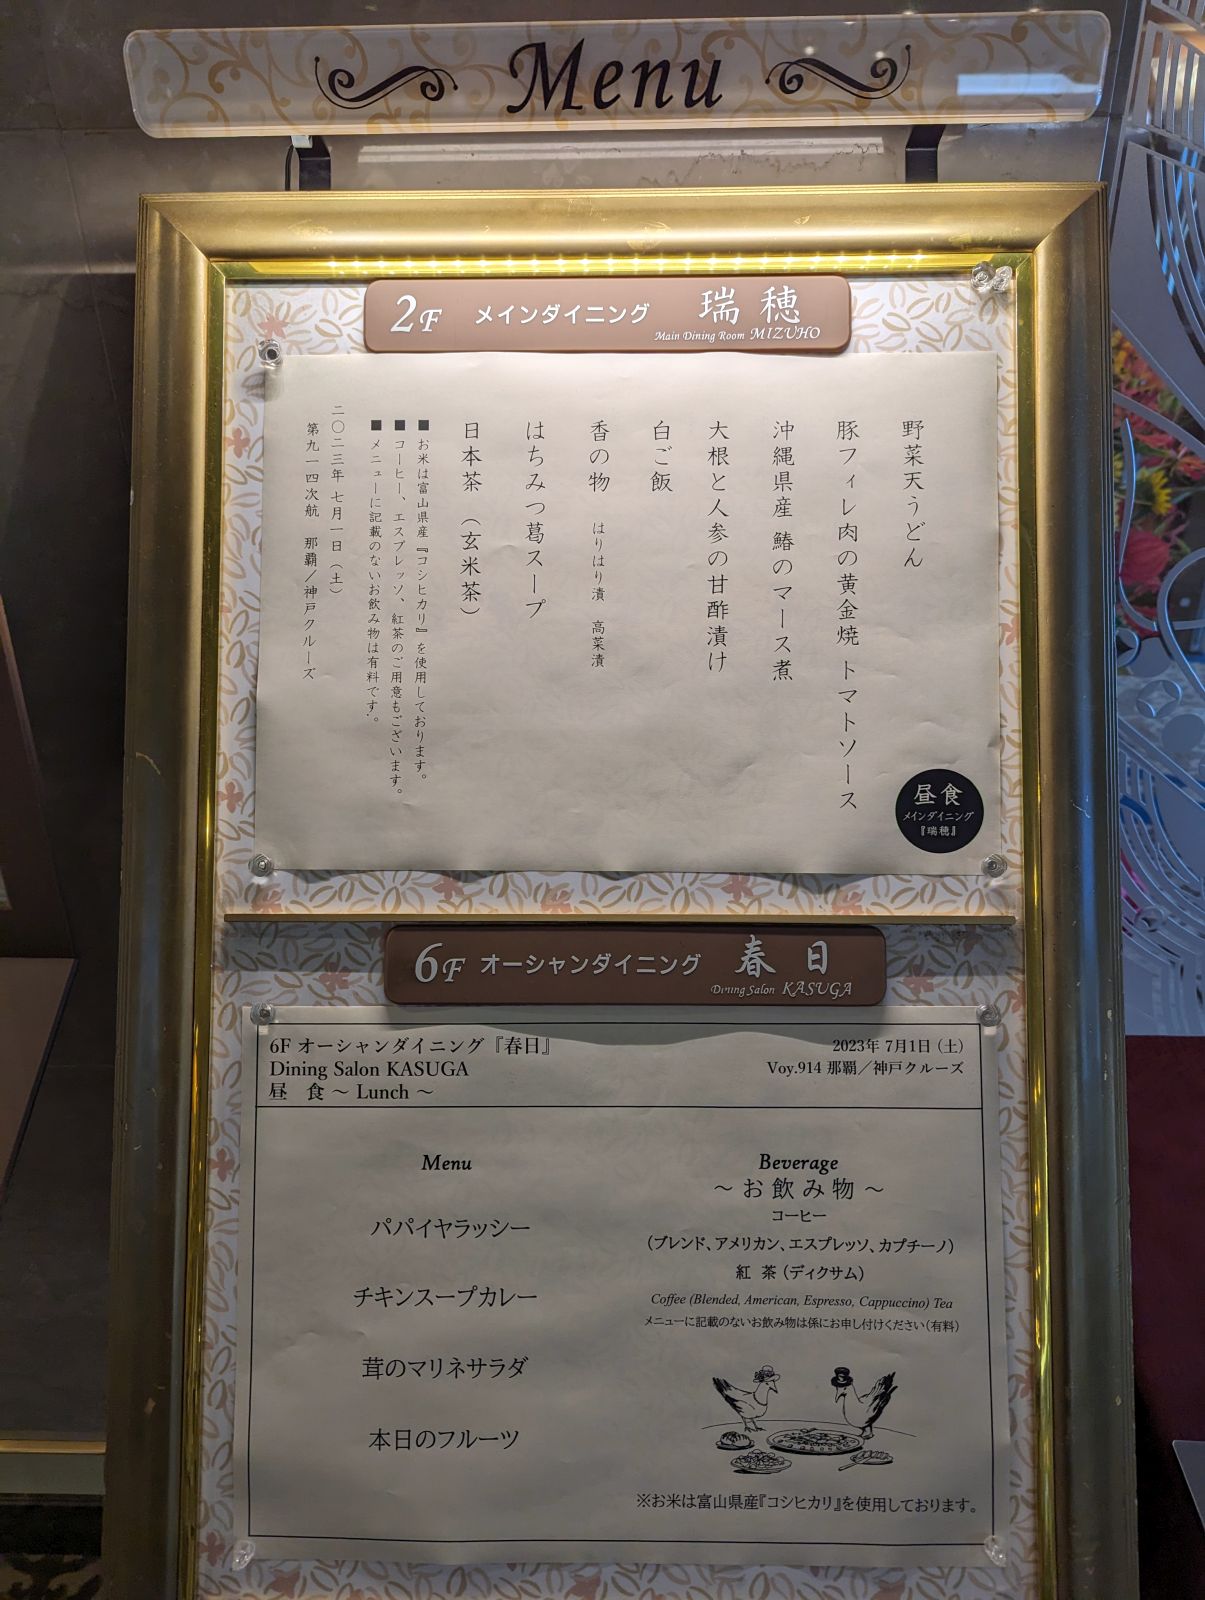 Menu
2F メインダイニング 瑞穂
Main Dining Room MIZUHO
野菜天うどん
豚フィレ肉の黄金焼 トマトソース
沖縄県産 鰆のマース煮
大根と人参の甘酢漬け
白ご飯
香の物 はりはり漬 高菜漬
はちみつ葛スープ
日本茶 （玄米茶）
■お米は富山県産『コシヒカリ』を使用しております。
■コーヒー、エスプレッソ、紅茶のご用意もございます。
■メニューに記載のないお飲み物は有料です。
二〇二三年 七月一日（土）
第九一四次航 那覇／神戸クルーズ
昼食
メインダイニング
『瑞穂』
6F オーシャンダイニング 春日
Dining Salon KASUGA
6F オーシャンダイニング『春日』
Dining Salon KASUGA
昼 食 ～ Lunch ～
2023年 7月1日（土）
Voy.914 那覇／神戸クルーズ
Menu
パパイヤラッシー
チキンスープカレー
茸のマリネサラダ
本日のフルーツ
Beverage
～お飲み物～
コーヒー
（ブレンド、アメリカン、エスプレッソ、カプチーノ）
紅 茶（ディクサム）
Coffee (Blended, American, Espresso, Cappuccino) Tea
メニューに記載のないお飲み物は係にお申し付けください（有料）
※お米は富山県産『コシヒカリ』を使用しております。